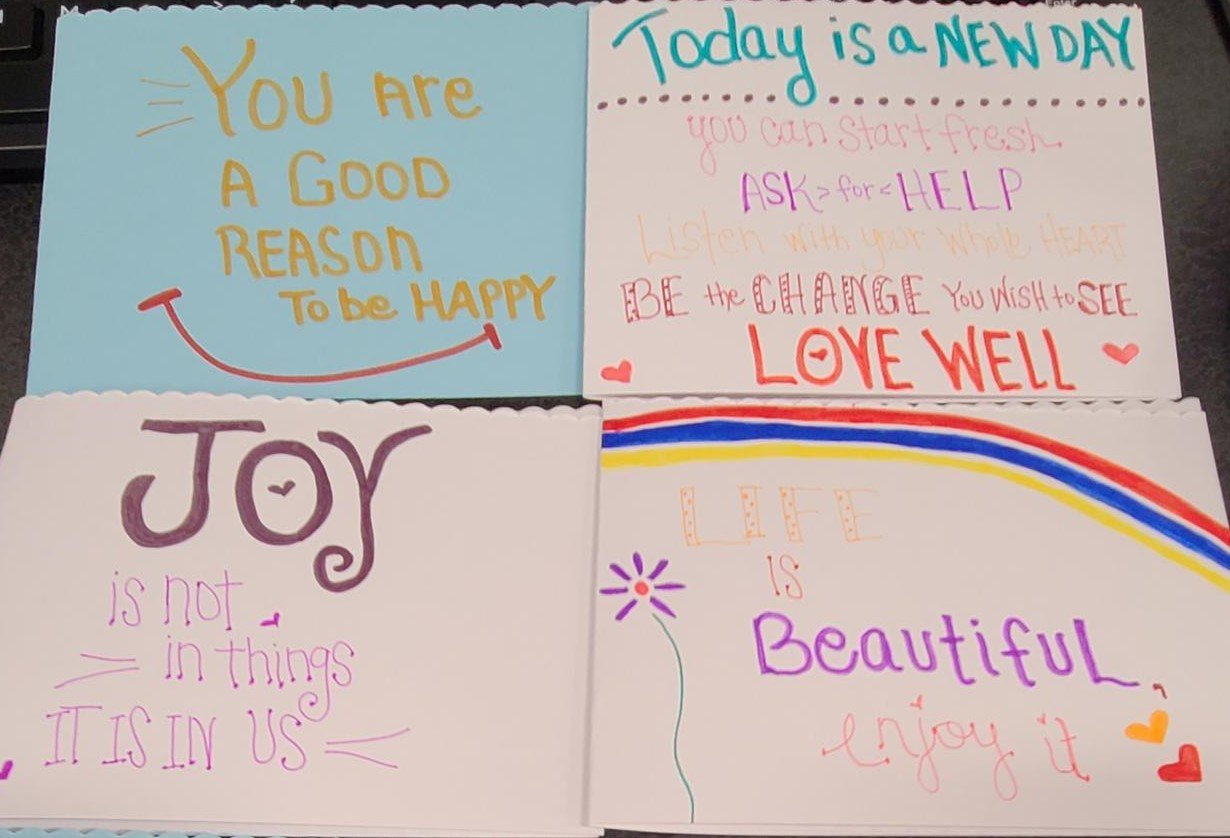 You Are
A GOOD
REASON
To be HAPPY
Today is a NEW DAY
you can start fresh
ASK > for < HELP
Listen with your whole HEART
BE the CHANGE YOU WISH to SEE
LOVE WELL
JOY
is not
in things
IT IS IN US
LIFE
IS
Beautiful,
enjoy it